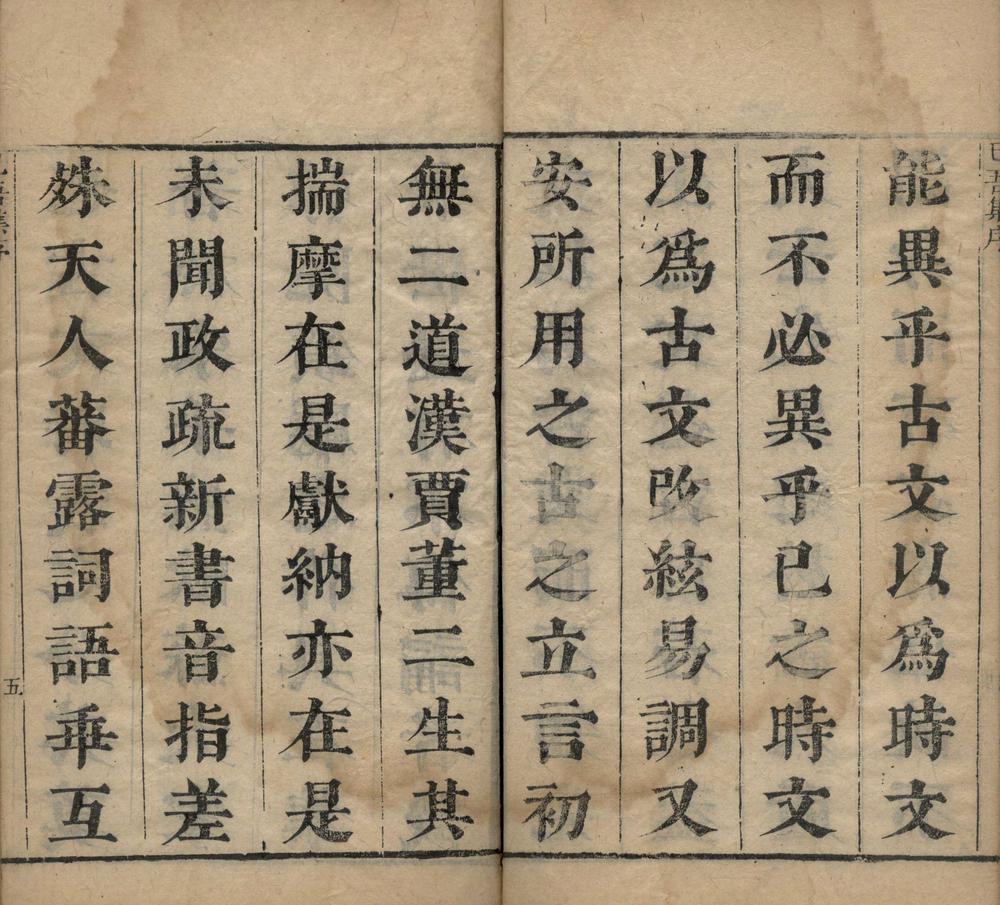 能異乎古文以爲時文
而不必異乎已之時文
以爲古文改絃易調又
安所用之古之立言初
無二道漢賈董二生其
揣摩在是獻納亦在是
未聞政疏新書音指差
殊天人蕃露詞語乖互
五